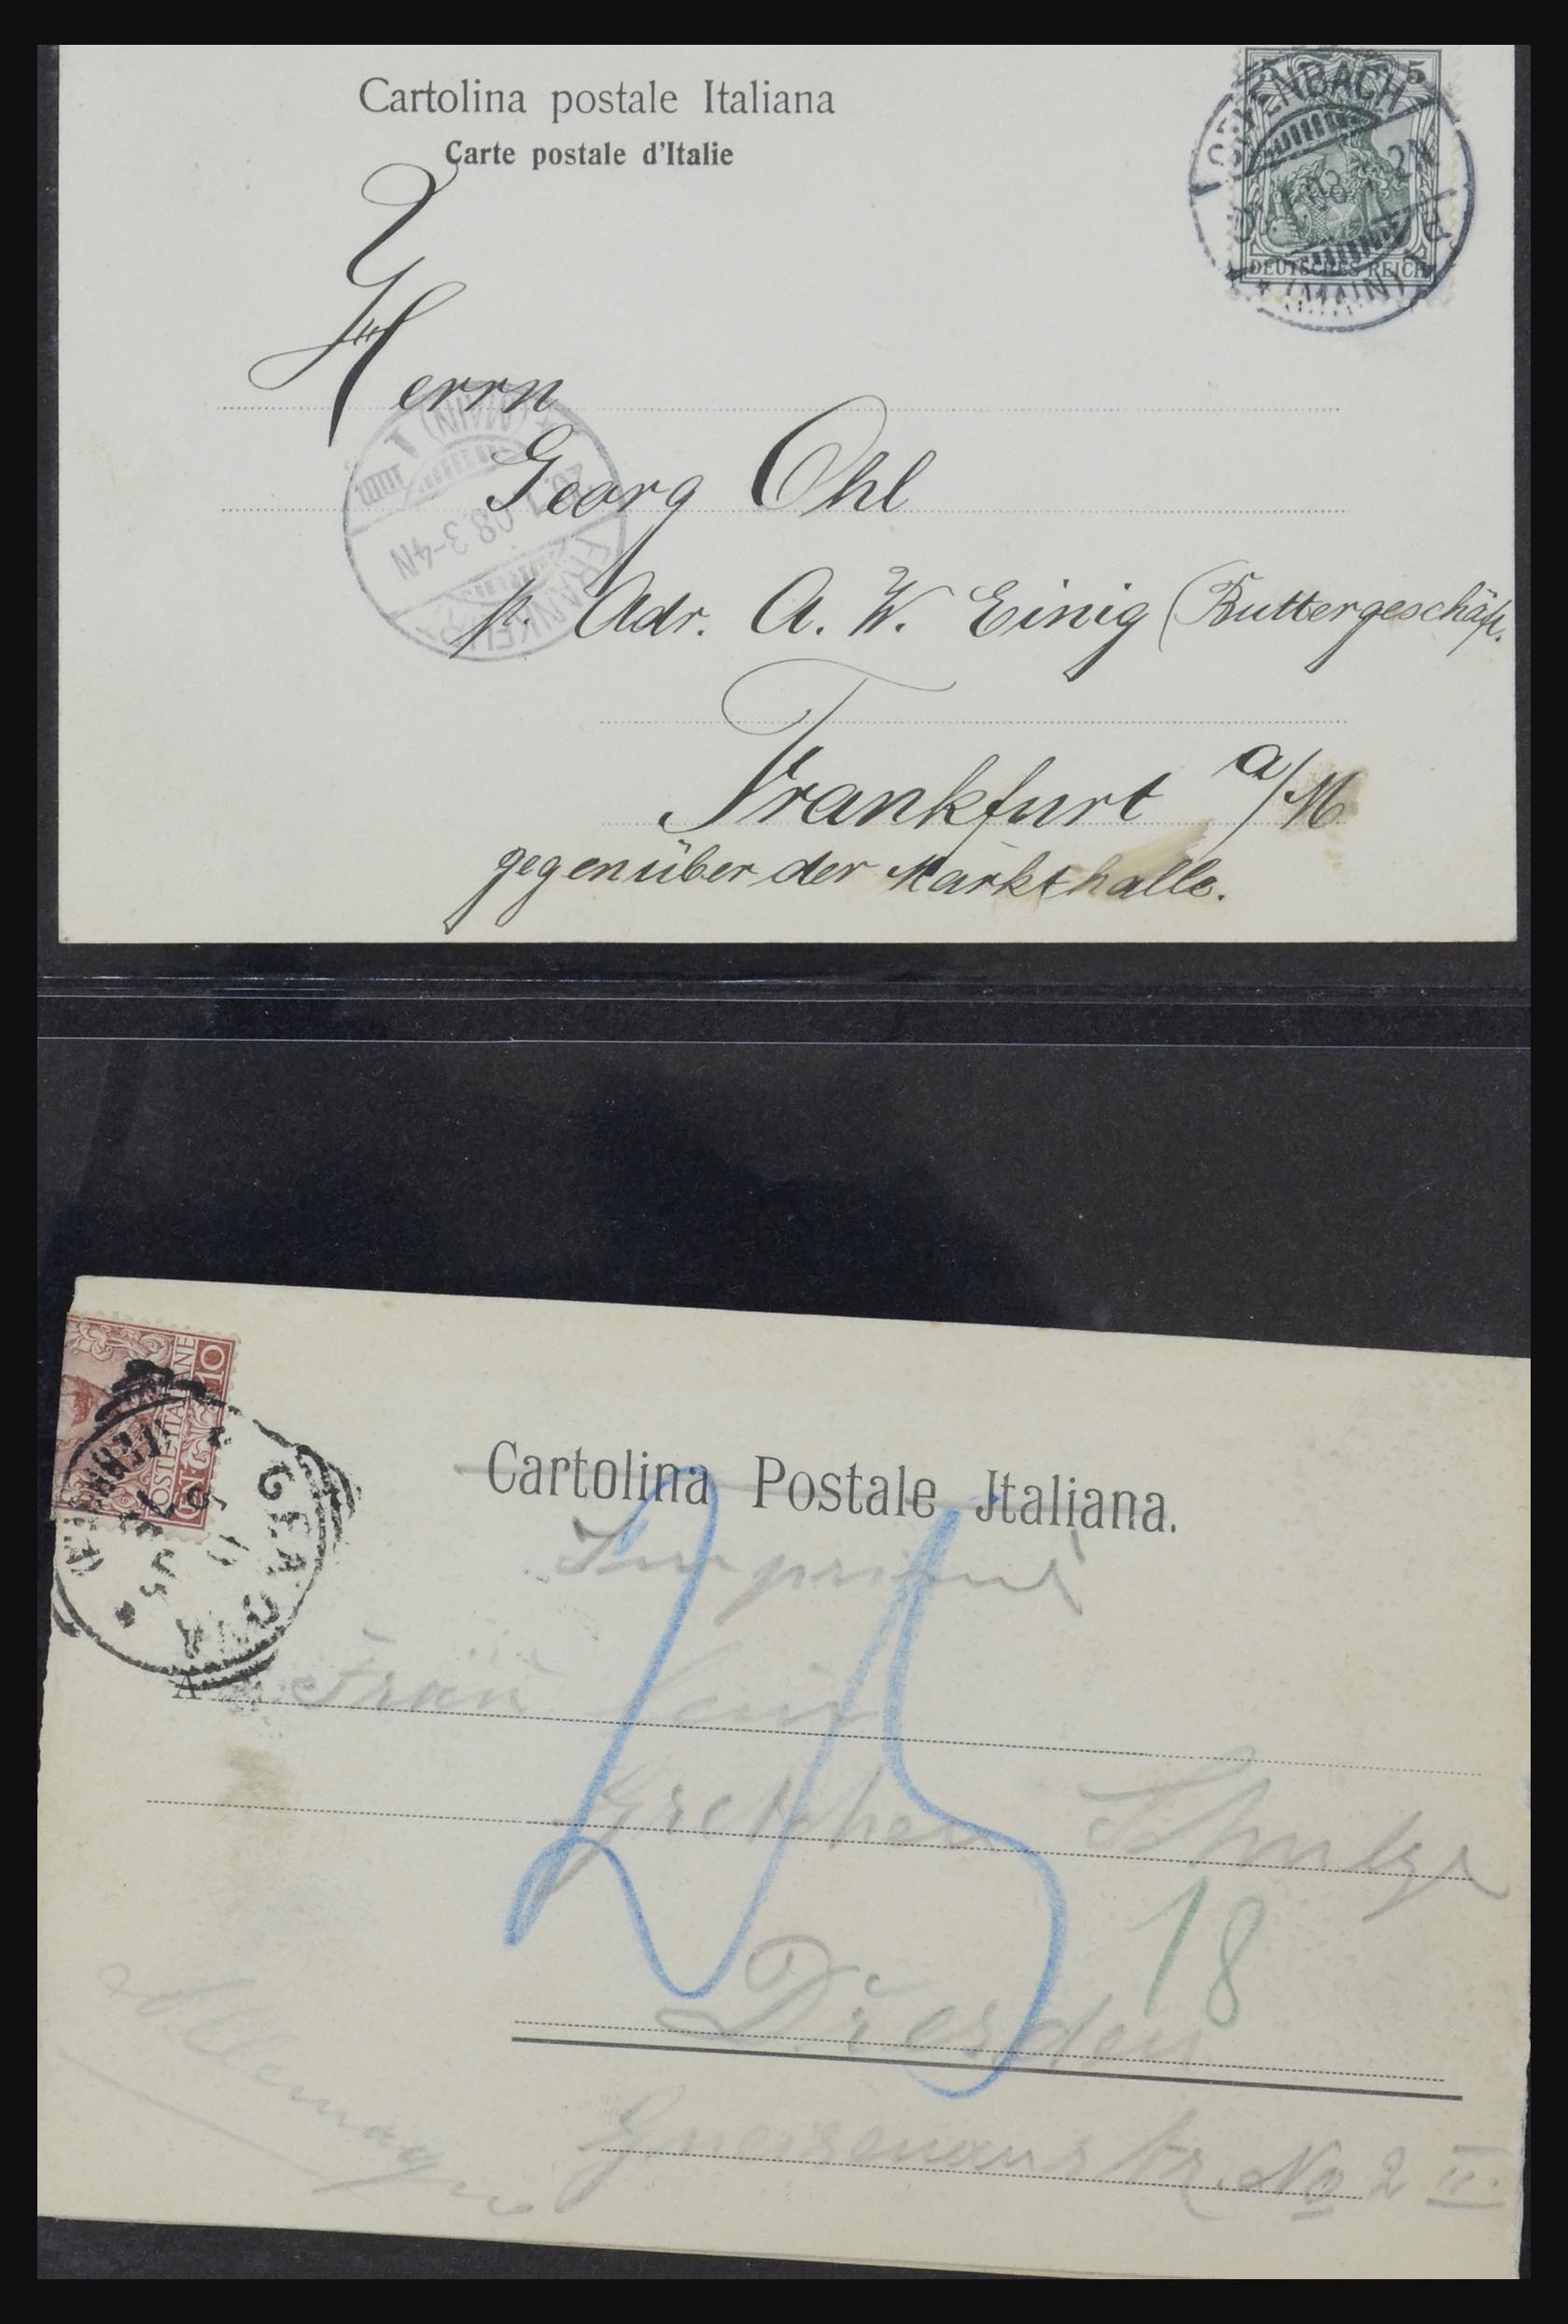 Cartolina postale Italiana
Carte postale d'Italie
5
DEUTSCHES REICH
(MAIN)
Herrn
Georg Ohl
p. Adr. A. W. Einig (Buttergeschäft.
Frankfurt a/M
gegenüber der Markthalle.
(MAIN) 1
08 3-4N
FRANKFURT
10
POSTE ITALIANE
Cartolina Postale Italiana.
Imprimé
A Frau
Gretchen Schulze
25
18
Dresden
Allemagne
Gneisenaustr. No 2 II.